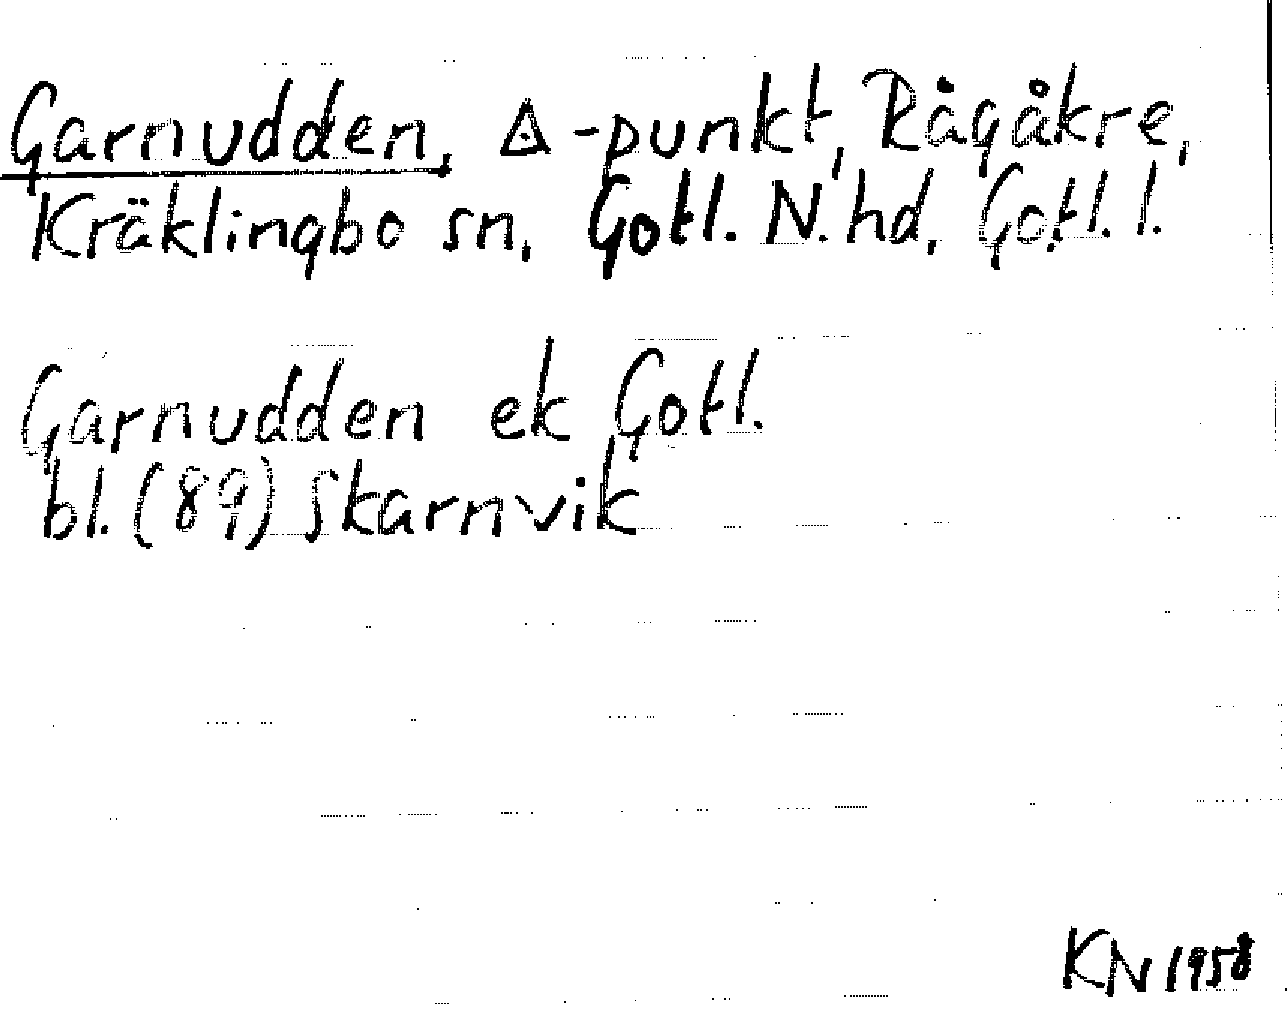 Garnudden, ◬-punkt, Rågåkre,
Kräklingbo sn, Gotl. N. hd, Gotl. l.
Garnudden ek Gotl.
bl. (89) Skarnvik
KN 1958